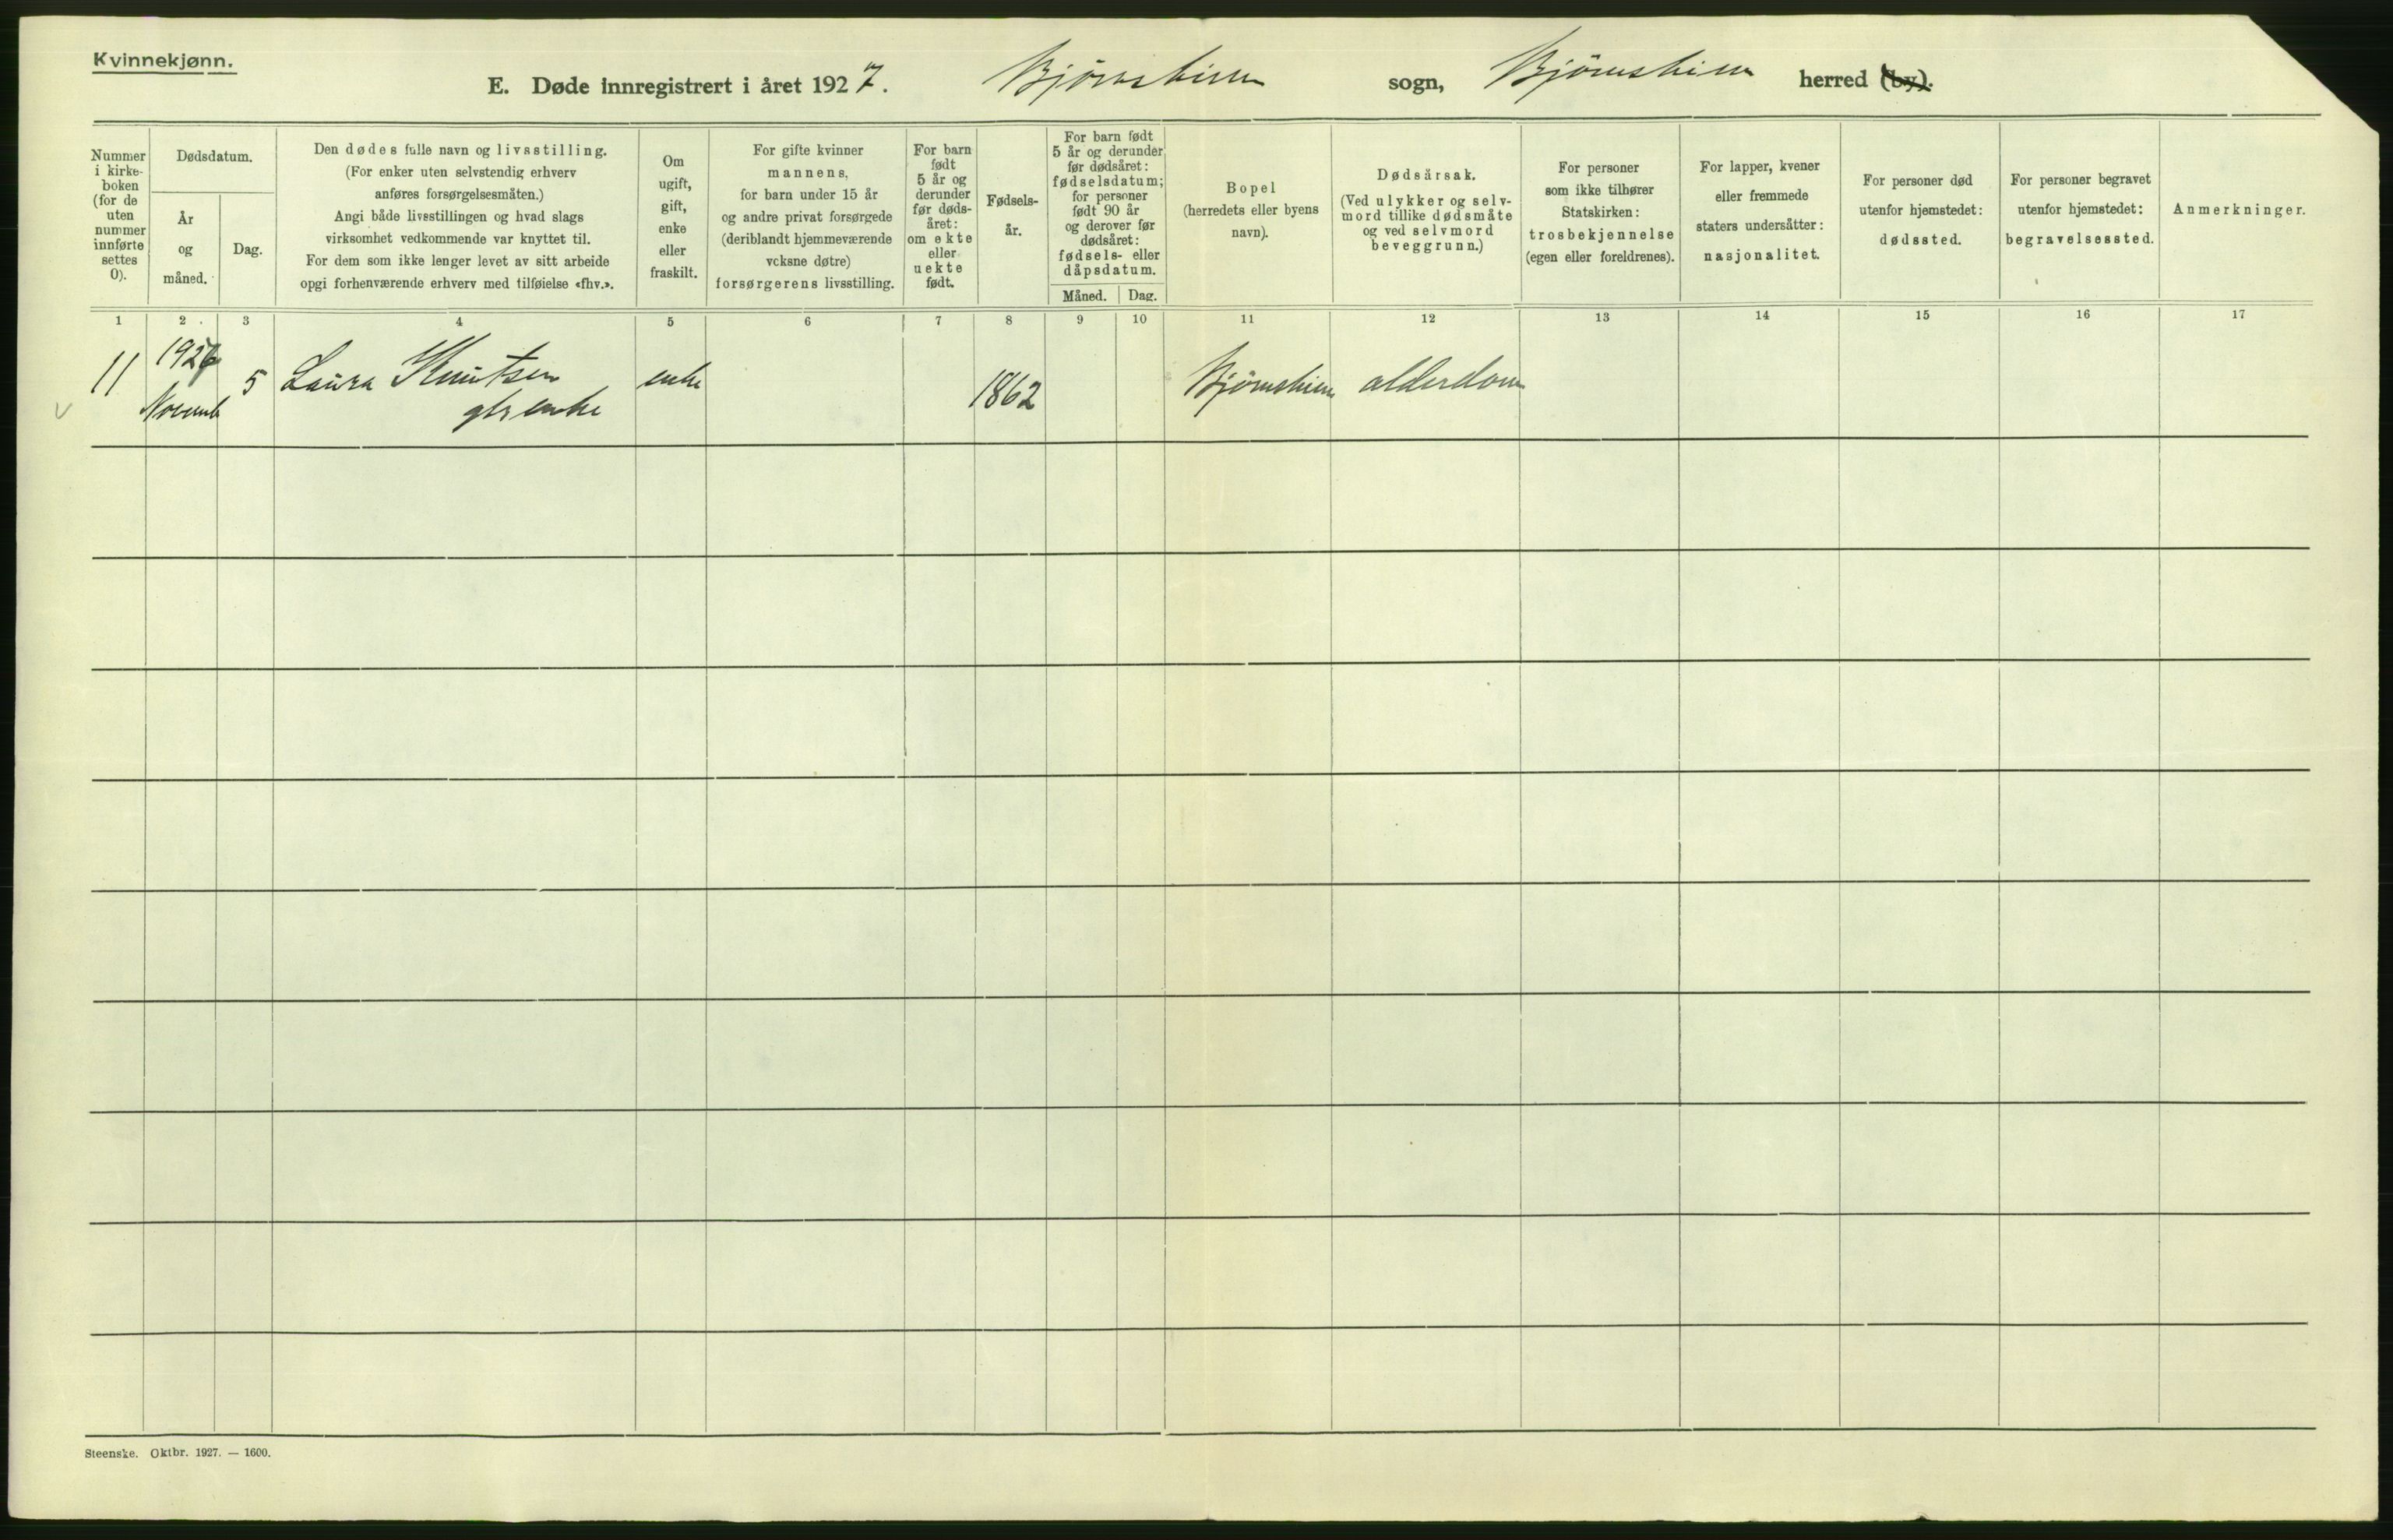 Kvinnekjønn.
E. Døde innregistrert i året 1927. Bjørnskinn sogn, Bjørnskinn herred (by).
Nummer i kirke- boken (for de uten nummer innførte settes 0).
Dødsdatum.
År og måned.
Dag.
Den dødes fulle navn og livsstilling.
(For enker uten selvstendig erhverv
anføres forsørgelsesmåten.)
Angi både livsstillingen og hvad slags
virksomhet vedkommende var knyttet til.
For dem som ikke lenger levet av sitt arbeide
opgi forhenværende erhverv med tilføielse «fhv.».
Om ugift, gift, enke eller fraskilt.
For gifte kvinner
mannens,
for barn under 15 år
og andre privat forsørgede
(deriblandt hjemmeværende
vcksne døtre)
forsørgerens livsstilling.
For barn født 5 år og derunder før døds- året: om ekte eller uekte født.
Fødsels- år.
For barn født
5 år og derunder
før dødsåret:
fødselsdatum;
for personer
født 90 år
og derover før
dødsåret:
fødsels- eller
dåpsdatum.
Måned. Dag.
Bopel
(herredets eller byens
navn).
Dødsårsak.
(Ved ulykker og selv-
mord tillike dødsmåte
og ved selvmord
beveggrunn.)
For personer
som ikke tilhører
Statskirken:
trosbekjennelse
(egen eller foreldrenes).
For lapper, kvener
eller fremmede
staters undersåtter:
nasjonalitet.
For personer død
utenfor hjemstedet:
dødssted.
For personer begravet
utenfor hjemstedet:
begravelsessted.
Anmerkninger.
1 2 3 4 5 6 7 8 9 10 11 12 13 14 15 16 17
11 1927 Novemb 5 Laura Knutsen enke 1862 Bjørnskinn alderdom
enke
Steenske. Oktbr. 1927. — 1600.